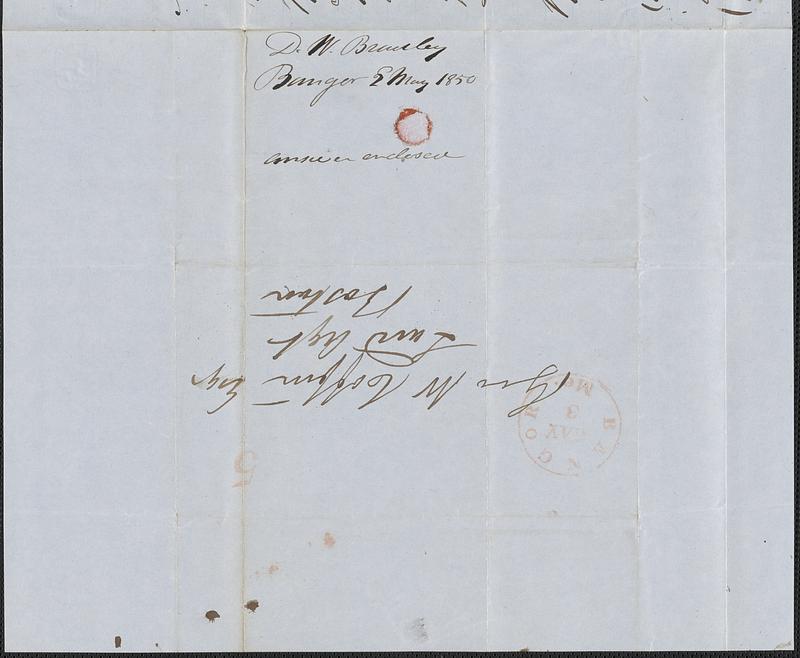 D. W. Bradley
Bangor 2 May 1850
answer enclosed
Geo W Coffin Esqr
Land Agt
Boston
BANGOR
MAY
3
Me.
5